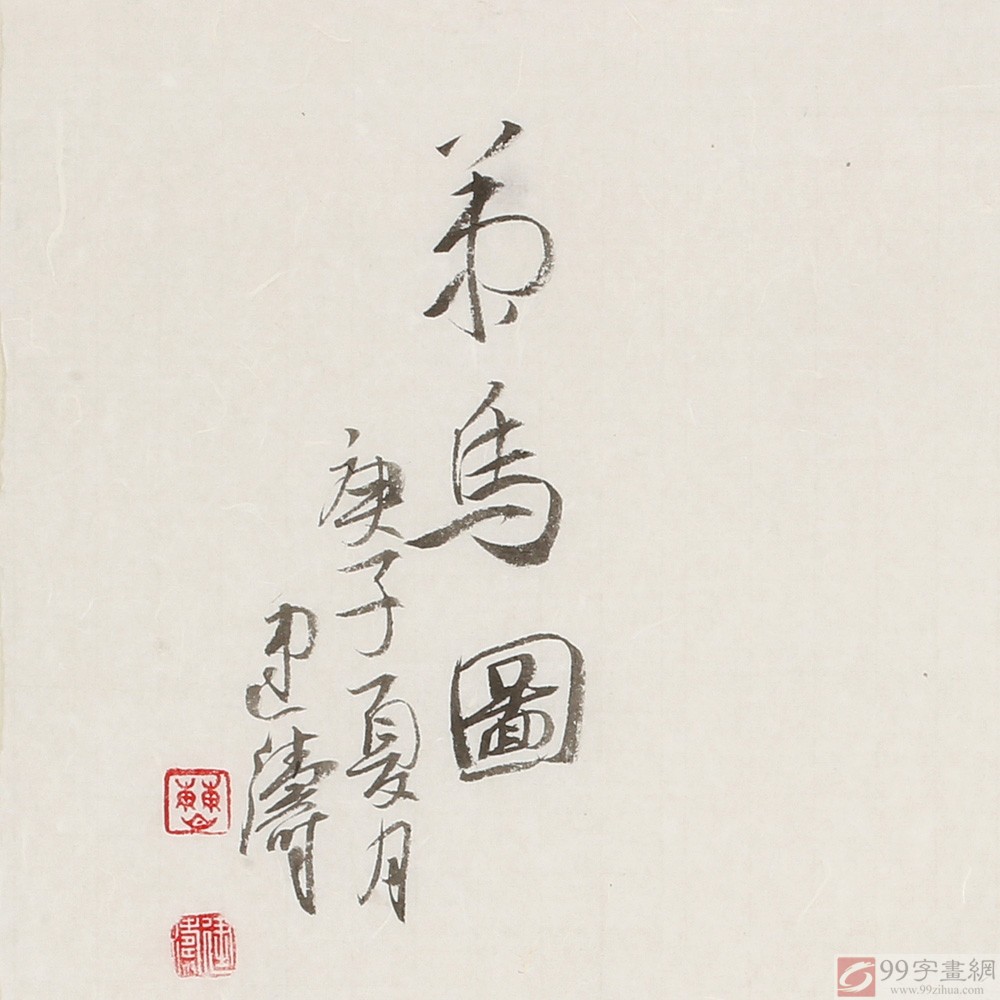 策馬圖
庚子夏月
建濤
99字畫網
www.99zihua.com